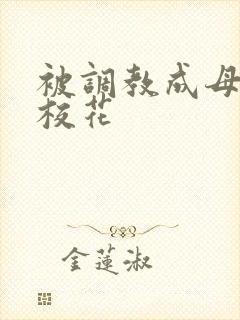 被調教成母
校花
金蓮淑